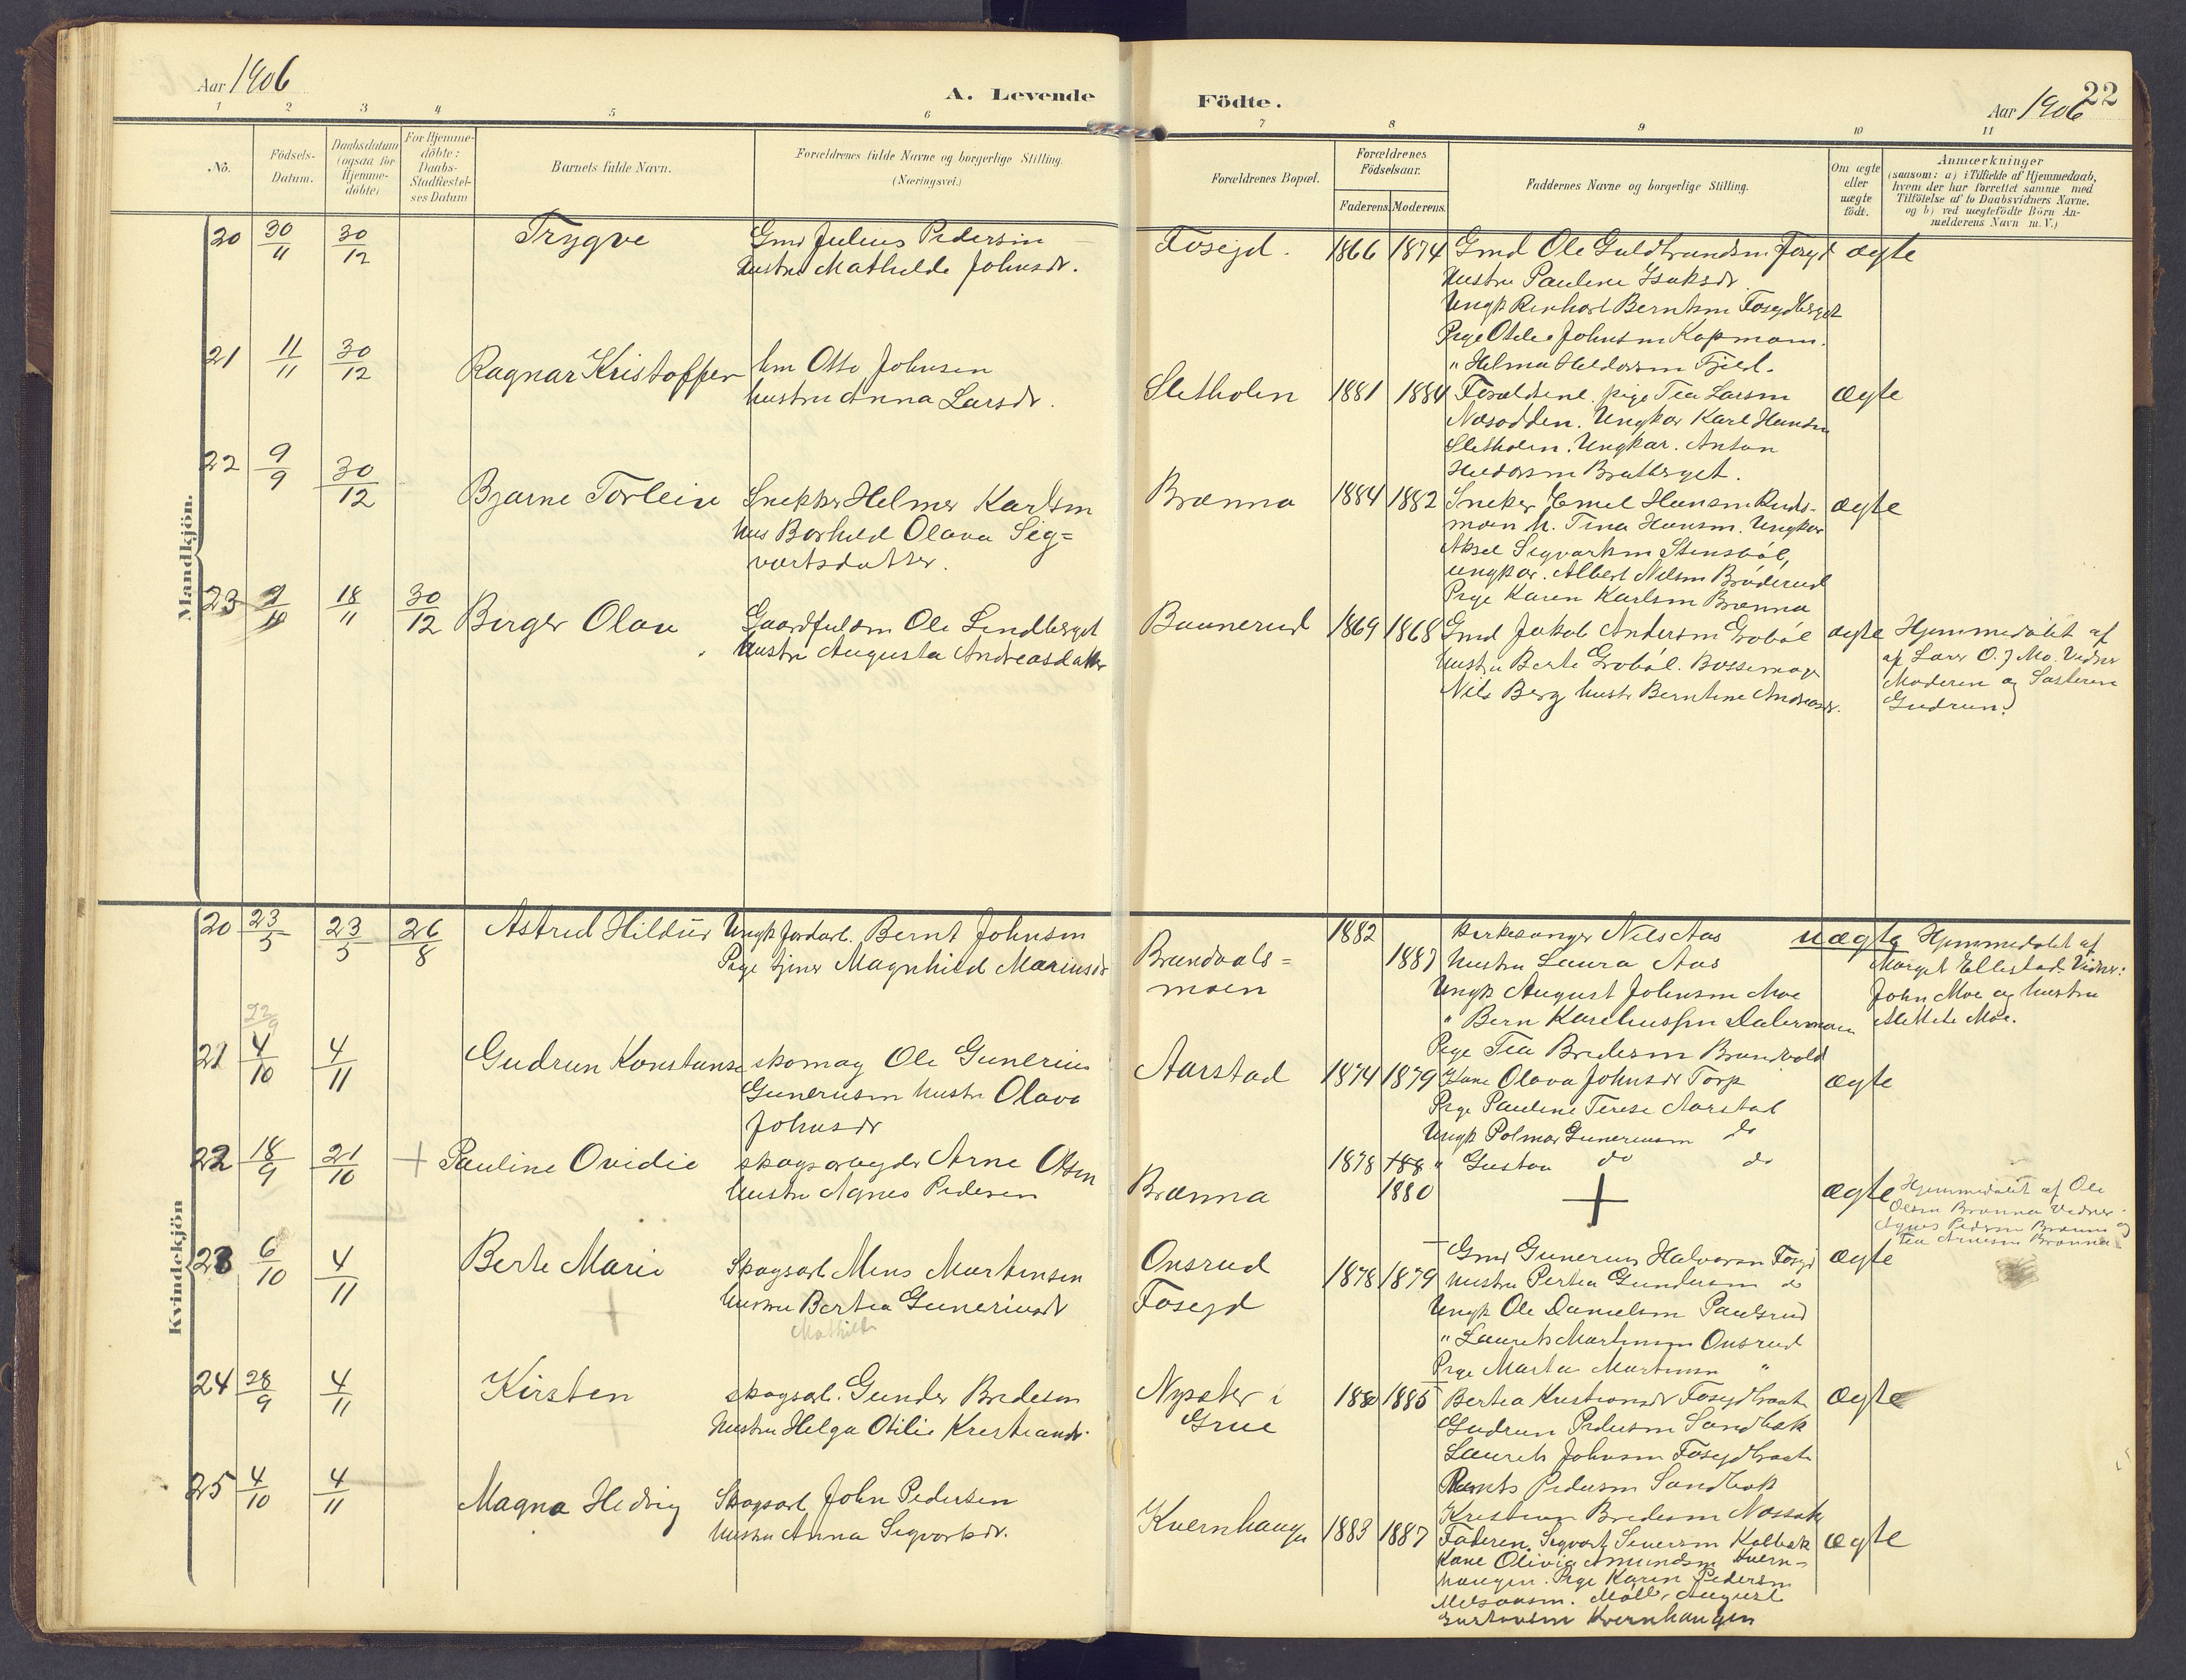 Aar 1906
A. Levende Födte.
22
Aar 1906
1 2 3 4 5 6 7 8 9 10 11
No.
Födsels-
Datum.
Daabsdatum
(ogsaa for
Hjemme-
döbte)
For Hjemme-
döbte:
Daabs-
Stadfæstel-
ses Datum
Barnets fulde Navn.
Forældrenes fulde Navne og borgerlige Stilling.
(Næringsvei.)
Forældrenes Bopæl.
Forældrenes
Födselsaar.
Faderens. Moderens.
Faddernes Navne og borgerlige Stilling.
Om ægte
eller
uægte
födt.
Anmærkninger
(saasom: a) i Tilfælde af Hjemmedaab,
hvem der har forrettet samme med
Tilföielse af to Daabsvidners Navne.
og b) ved uægtefödte Börn An-
melderens Navn m. V.)
Mandkjön.
20 30/11 30/12 Trygve
Gmd Julius Pedersen
Hustru Mathilde Johnsdr.
Foseyd. 1866 1874
Gmd Ole Guldbrandsen Foseyd
Hustru Pauline Isaksdr
Ungk Berntsen Foseydberget
Pige Otilie Johnsen Kopmoen.
" Helma Fjeld.
ægte
21 11/11 30/12 Ragnar Kristoffer
Otto Johnsen
hustru Anna Larsdr.
Sletholen 1881 1884
Forældrene. pige Tea Larsen
Næsodden. Ungkar Karl Hansen
Sletholen. Ungkar. Anton
Bratberget.
ægte
22 9/9 30/12 Bjarne Torleiv
Snekker Helmer Karlsen
Hus Borhild Olava Sig=
vartsdatter.
Brænna 1884 1882
Sneker Emil Hansen Ruds-
moen h. Tina Hansen. Ungkar
Aksel Sigvartsen Stensböl,
ungkar. Albert Nilsen Bröderud
Pige Karen Karlsen Brænna
ægte
23 18/11 30/12 Birger Olav
Ole Lindberget
Hustru Augusta Andreasdatter
Baunerud 1869 1868
Gmd Jakob Andersen Groböl
Hustru Berte Groböl. Bossemager
Nils Berg hustr Berntine Andreasdr.
ægte
Hjemmedöbt af
af Lærer O. J Mo. Vidner
Moderen og Sösteren
Gudrun.
Kvindekjön
20 23/5 23/5 26/8 Astrid Hildur
Ungk jordarb. Bernt Johnsen
Pige tjener Magnhild Mariusdr
Brandvals=
moen
1882
1887
Kirkesanger Nils Aas
Hustru Laura Aas
Ungk August Johnsen Moe
Pige Tea Bredesen Brandvold
uægte
Hjemmedöbt af
Margit Ellestad. Vidner:
John Moe og hustru
Mette Moe.
22/9
21 4/10 4/11 Gudrun Konstanse
skomag Ole Gunerius
Gunerusen hustr Olava
Johnsdr
Aarstad 1874 1879
Kone Olava Johnsdr Torp
Pige Pauline Terese Aarstad
Ungk Polmar Gunerusen do
" Gustav do do
ægte
22 18/9 21/10 + Pauline Ovidie
skogsarbeyder Arne Olsen
Hustru Agnes Pedersen
Brænna 1878 188
1880
+
ægte
Hjemmedöbt af Ole
Olsen Brænna Vidner
Agnes Pedersen Brænna og
Tea Arnesen Brænna
23 6/10 4/11 Berte Marie
Skogsarb Mens Martinsen
Hustru Bertea Guneriusdr
Mathilde
Onsrud
Foseyd
1878 1879
Gmd Gunerius Halvorsen Foseyd
Hustru Pertea Gundersen do
Ungk Ole Danielsen Paulsrud
" Laurits Martinsen Onsrud
Pige Marta Martinsen "
ægte
24 28/9 4/11 Kirsten
skogsarb. Gunder Bredesen
Hustru Helga Otilie Kristiansdr.
Nyseter i
Grue
1880 1885
Bertea Kristiansdr Foseydbraat
Gudrun Pedersen Sandbæk
Laurits Johnsen Foseydbraat
Pedersen Sandbæk
Kristian Bredesen
ægte
25 4/10 4/11 Magna Hedvig
Skogsarb John Pedersen
Hustru Anna Sigvartsdr.
Kvernhaugen 1883 1887
Faderen. Sigvart Siversen Kalbæk
Kone Olivia Amundsen Kvern-
haugen. Pige Karen Pedersen
August
Gustavsen Kvernhaugen
ægte